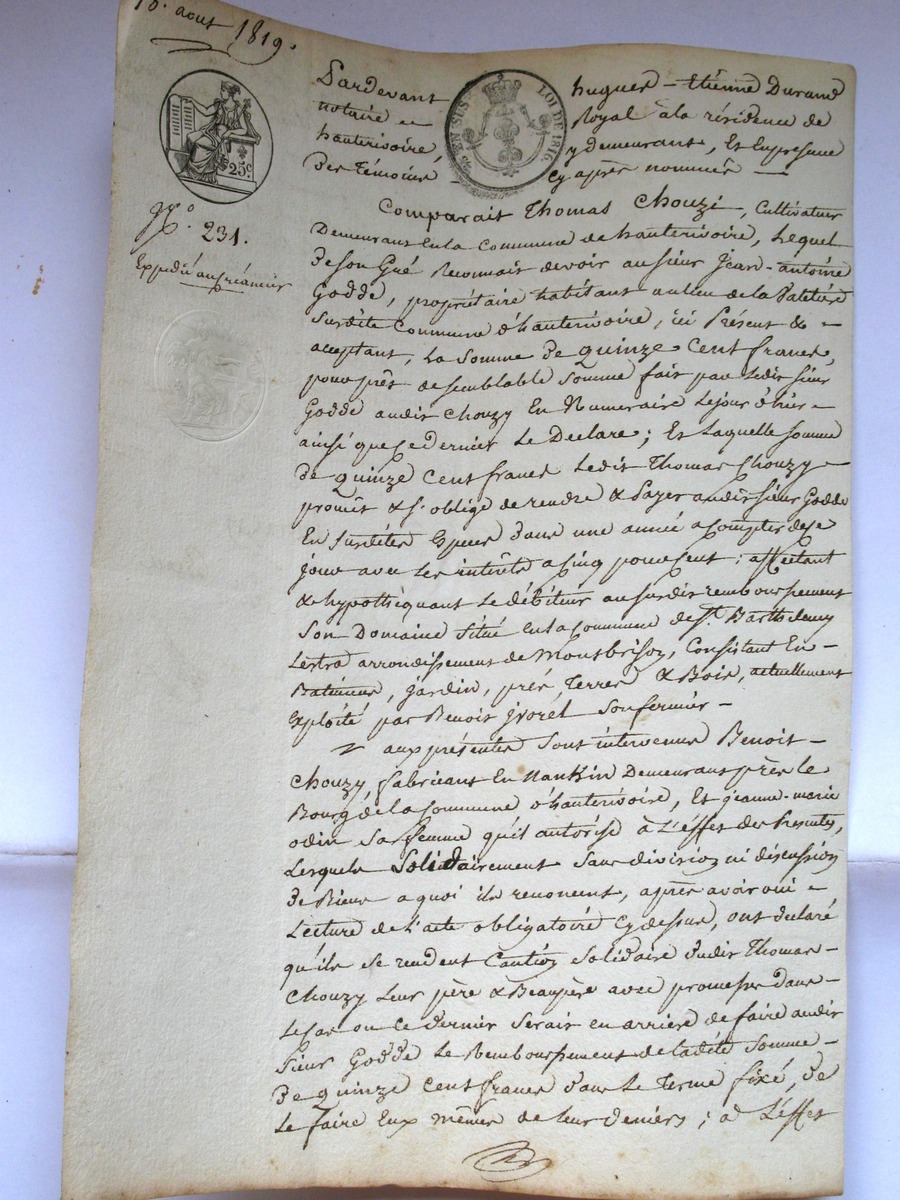 10. aout 1819.
Pardevant hugues - Etienne Durand
notaire Royal à la résidence de
hauterivoire, y demeurant, Et En presence
Des Témoins Cy après nommés
25c
EN SUS LOI DE 1816.
N.o 231.
Expedié au créancier
Comparait Thomas Chouzi, Cultivateur
Demeurant En la Commune de hauterivoire, Lequel
De son Gré Reconnait devoir au sieur Jean-antoine
Godde, propriétaire habitant au lieu de la
Surdite Commune d'hauterivoire, ici Présent & -
acceptant, La Somme De Quinze Cent francs,
pour prêt de semblable Somme fait par Ledit sieur
Godde audit Chouzy En Numeraire Le jour d'hier -
ainsi que Ce dernier Le Declare ; Et Laquelle somme
De Quinze Cent francs Ledit Thomas Chouzy -
promet & s'oblige de rendre & Payer audit sieur Godde
En Surdites Especes Dans une année a Compter de ce
jour avec Les intérêts a Cinq pour Cent ; affectant
& hypothéquant Le débiteur au surdit remboursement
Son Domaine Situé En la Commune de St. Barthelemy
Lestra arrondissement de Montbrison, Consistant En -
Batimens, jardin, prés, Terres & Bois, actuellement
Exploité par Benoit Son fermier -
aux présentes Sont intervenus Benoit -
Chouzy, fabricant En Nankin Demeurant près le
Bourg de la Commune d'hauterivoire, Et jeanne-marie
odin Sa femme qu'il autorise à L'éffet des Presentes,
Lesquels Solidairement Sans division ni discussion
De Biens a quoi ils renoncent, après avoir oui -
Lecture de l'acte obligatoire Cy dessus, ont declaré
qu'ils se rendent Caution Solidaire dudit Thomas -
Chouzy Leur père & Beaupère avec promesse Dans -
Le Cas ou Ce dernier Serait en arriere de faire audit
Sieur Godde Le Remboursement de ladite Somme -
De Quinze Cent francs Dans Le Terme fixé, de
Le faire Eux mêmes de leurs deniers ; a L'effet